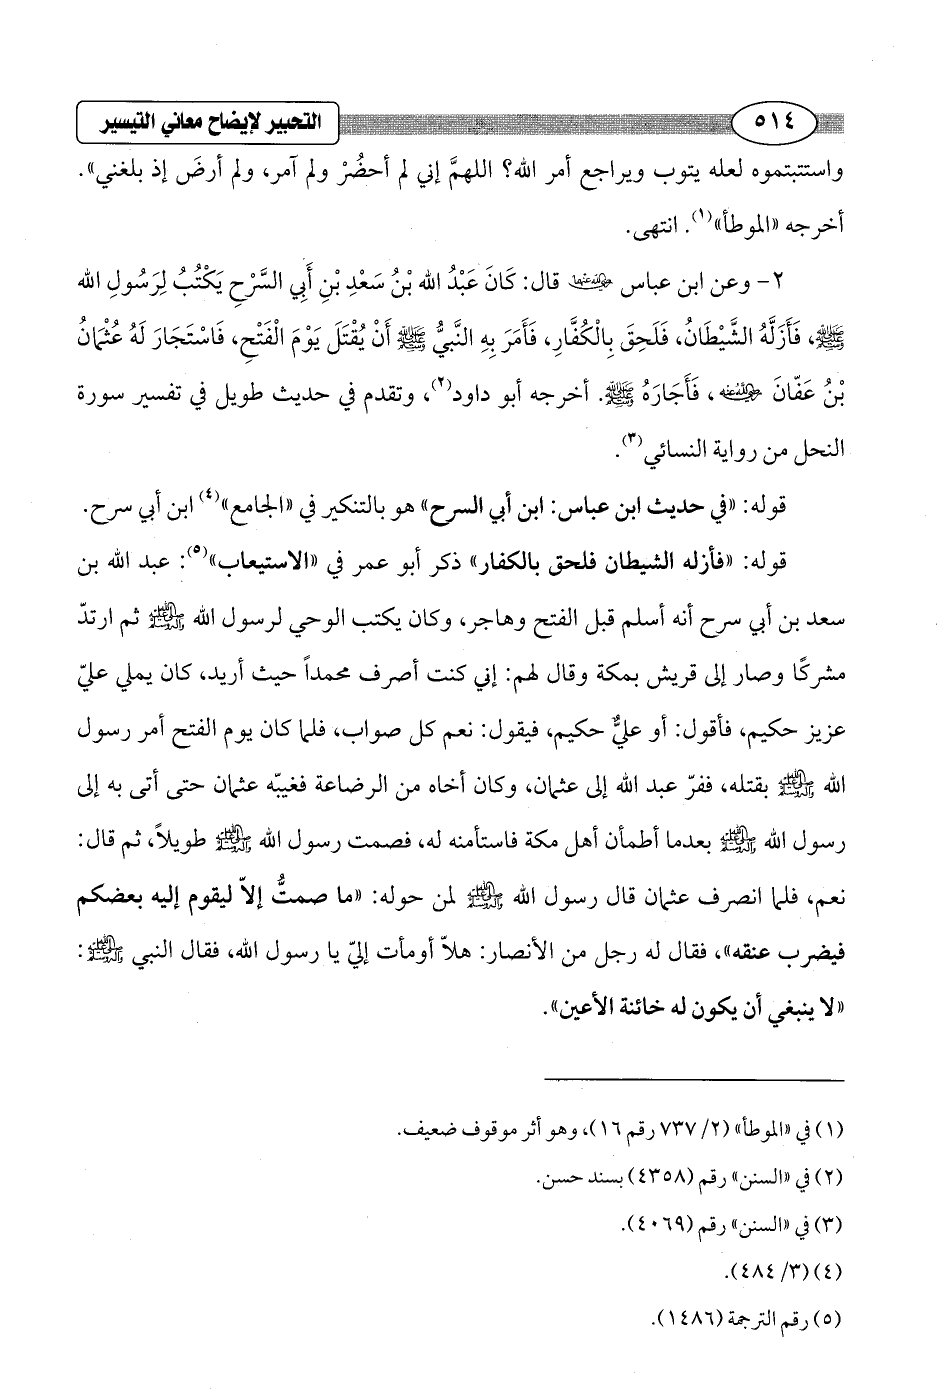 ٥١٤
التحبير لإيضاح معاني التيسير
واستتبتموه لعله يتوب ويراجع أمر الله؟ اللهمَّ إني لم أحضُرْ ولم آمر، ولم أرضَ إذ بلغني».
أخرجه «الموطأ»(١). انتهى.
٢- وعن ابن عباس رضي الله عنهما قال: كَانَ عَبْدُ الله بْنُ سَعْدِ بْنِ أَبِي السَّرْحِ يَكْتُبُ لِرَسُولِ الله
ﷺ، فَأَزَلَّهُ الشَّيْطَانُ، فَلَحِقَ بِالْكُفَّارِ، فَأَمَرَ بِهِ النَّبِيُّ ﷺ أَنْ يُقْتَلَ يَوْمَ الْفَتْحِ، فَاسْتَجَارَ لَهُ عُثْمَانُ
بْنُ عَفَّانَ رضي الله عنه، فَأَجَارَهُ ﷺ. أخرجه أبو داود(٢)، وتقدم في حديث طويل في تفسير سورة
النحل من رواية النسائي(٣).
قوله: «في حديث ابن عباس: ابن أبي السرح» هو بالتنكير في «الجامع»(٤) ابن أبي سرح.
قوله: «فأزله الشيطان فلحق بالكفار» ذكر أبو عمر في «الاستيعاب»(٥): عبد الله بن
سعد بن أبي سرح أنه أسلم قبل الفتح وهاجر، وكان يكتب الوحي لرسول الله ﷺ ثم ارتدّ
مشركًا وصار إلى قريش بمكة وقال لهم: إني كنت أصرف محمداً حيث أريد، كان يملي عليّ
عزيز حكيم، فأقول: أو عليٌّ حكيم، فيقول: نعم كل صواب، فلما كان يوم الفتح أمر رسول
الله ﷺ بقتله، ففرّ عبد الله إلى عثمان، وكان أخاه من الرضاعة فغيبّه عثمان حتى أتى به إلى
رسول الله ﷺ بعدما أطمأن أهل مكة فاستأمنه له، فصمت رسول الله ﷺ طويلاً، ثم قال:
نعم، فلما انصرف عثمان قال رسول الله ﷺ لمن حوله: «ما صمتُّ إلاّ ليقوم إليه بعضكم
فيضرب عنقه»، فقال له رجل من الأنصار: هلاّ أومأت إليّ يا رسول الله، فقال النبي ﷺ:
«لا ينبغي أن يكون له خائنة الأعين».
(١) في «الموطأ» (٢/ ٧٣٧ رقم ١٦)، وهو أثر موقوف ضعيف.
(٢) في «السنن» رقم (٤٣٥٨) بسند حسن.
(٣) في «السنن» رقم (٤٠٦٩).
(٤) (٣/ ٤٨٤).
(٥) رقم الترجمة (١٤٨٦).